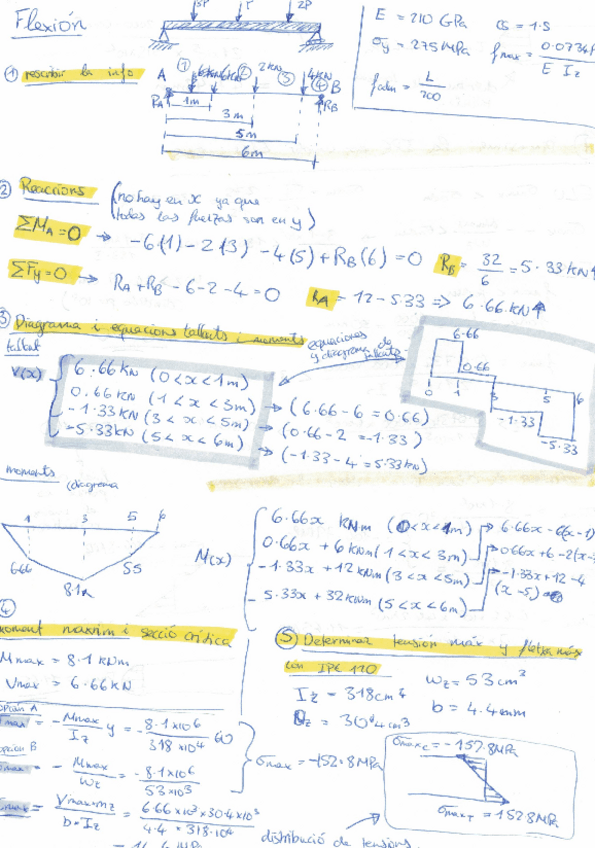 Flexión
3P P 2P
E = 210 GPa CS = 1.5
σy = 275 MPa fmax = 0.0734P
E Iz
fadm = L
200
① rescribir la info
A ① ② 2kN ③ 4kN ④ B
RA RB
1m
3m
5m
6m
② Reaccions (no hay en x ya que
todas las fuerzas son en y)
ΣMA = 0 → -6(1) -2(3) -4(5) + RB(6) = 0 RB = 32
6 = 5.33 kN↑
ΣFy = 0 → RA + RB - 6 - 2 - 4 = 0 RA = 12 - 5.33 => 6.66 kN↑
③ Diagrama i equacions tallants i moments
equaciones
y diagrama de
tallants
tallant
V(x)
6.66 kN (0<x<1m)
0.66 kN (1<x<3m) → (6.66-6 = 0.66)
-1.33 kN (3<x<5m) → (0.66-2 = -1.33)
-5.33 kN (5<x<6m) → (-1.33-4 = 5.33 kN)
6.66
0.66
0 1 3 5 6
-1.33
-5.33
moments
(diagrama
1 3 5 6
666 8.1 5.5
M(x)
6.66x kNm (0<x<1m) → 6.66x - 6(x-1)
0.66x + 6 kNm (1<x<3m) → 0.66x + 6 - 2(x-3
-1.33x + 12 kNm (3<x<5m) → -1.33x + 12 - 4
(x-5)
-5.33x + 32 kNm (5<x<6m)
④
moment maxim i secció crítica
Mmax = 8.1 kNm
Vmax = 6.66 kN
opción A
σmax = - Mmax
Iz y = - 8.1×10⁶
318×10⁴ 60
opción B
σmax = - Mmax
Wz = -8.1×10⁶
53×10³
σmax = -152.8 MPa
Vmax·mz
b·Iz = 6.66×10³×30.4×10³
4.4 × 318·10⁴
⑤ Determinar tensión máx y fletxa máx
con IPE 120
Iz = 318 cm⁴ Wz = 53 cm³
= 30.4 cm³ b = 4.4 mm
σmax c = -152.8 MPa
σmax T = 152.8 MPa
distribució de tensions.